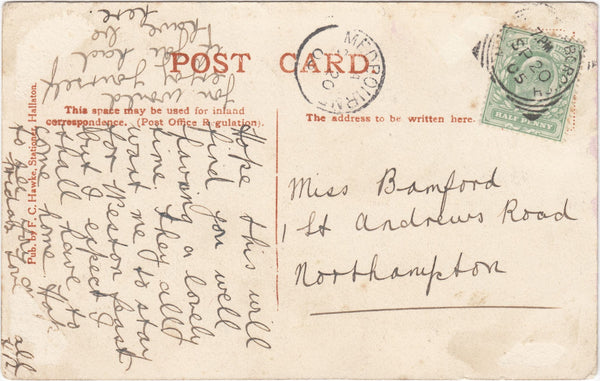 POST CARD
This space may be used for inland
correspondence. (Post Office Regulation).
The address to be written here.
Pub. by F. C. Hawke, Stationer, Hallaton.
MEDBOURNE
HALF PENNY
20
05
Miss Bamford
1 St Andrews Road
Northampton
Hope this will
find you well
having a lovely
time they all
want me to stay
for Weston feast
but I expect I
shall have to
come home. Hope
to see you
Friday love
you would
enjoy yourself
if you had
have been
here